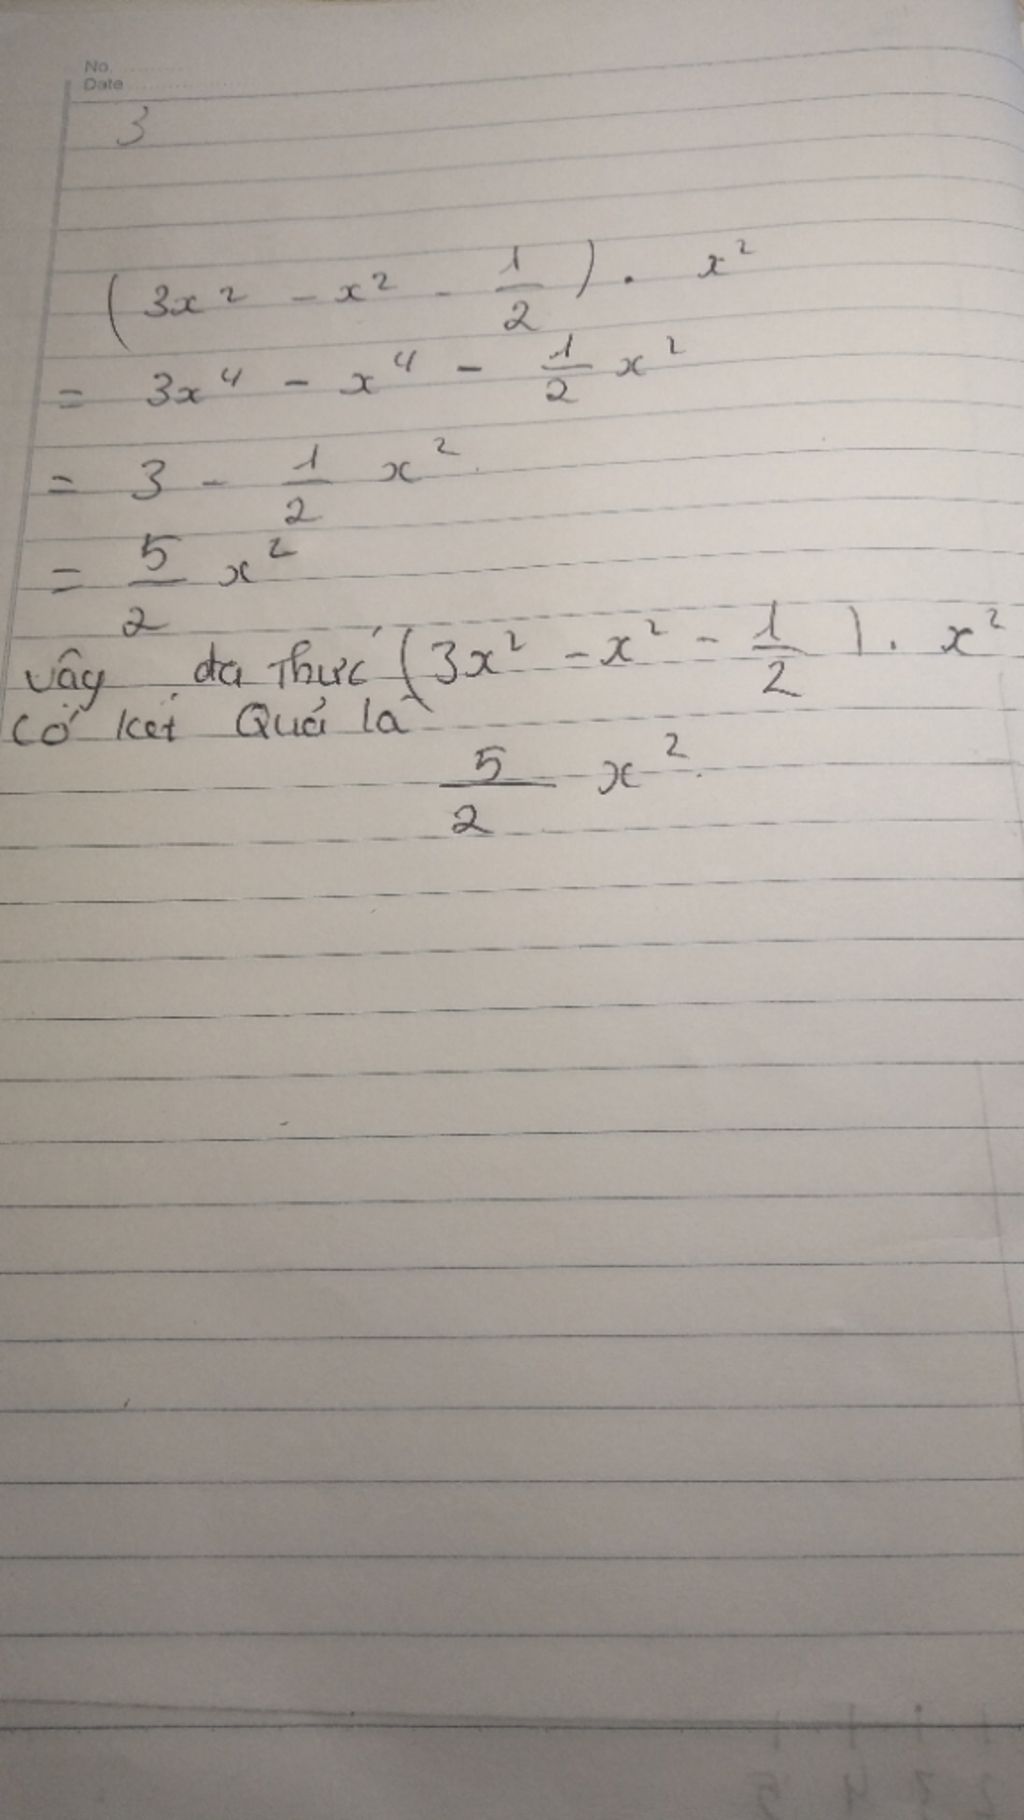 No.
Date
3
(3x² - x² - 1/2) . x²
= 3x⁴ - x⁴ - 1/2 x²
= 3 - 1/2 x²
= 5/2 x²
vậy đa Thức (3x² - x² - 1/2) . x²
có kết Quả là
5/2 x².